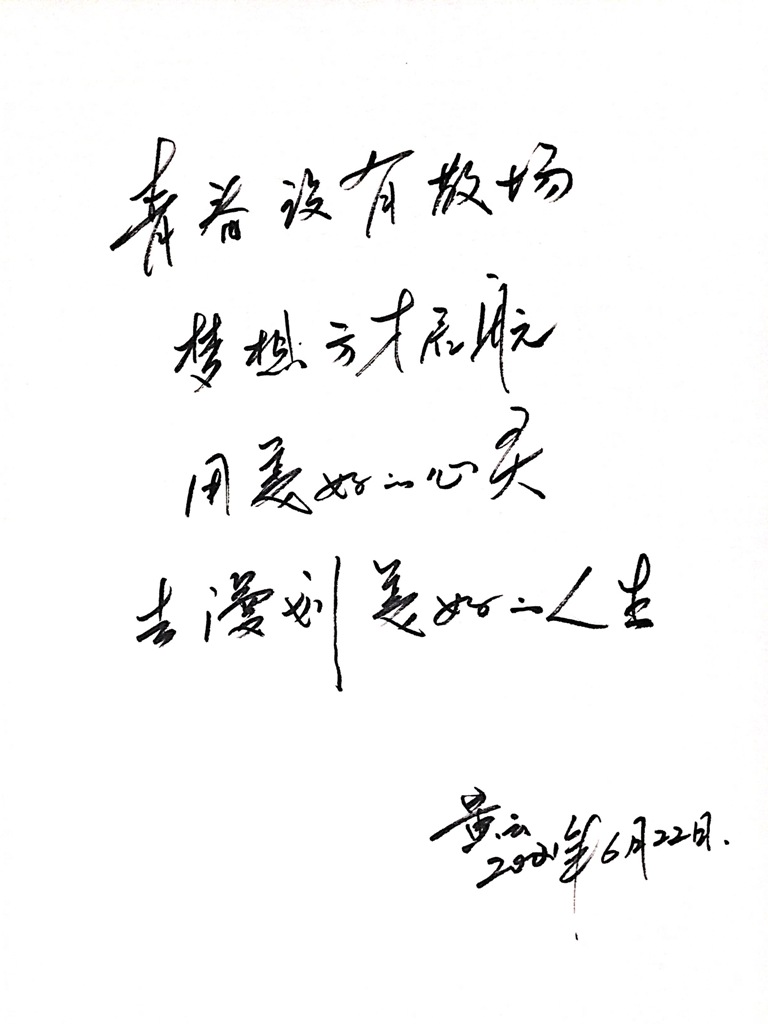 青春没有散场
梦想方才启航
用美好的心灵
去漫划美好的人生
黄云
2021年6月22日.